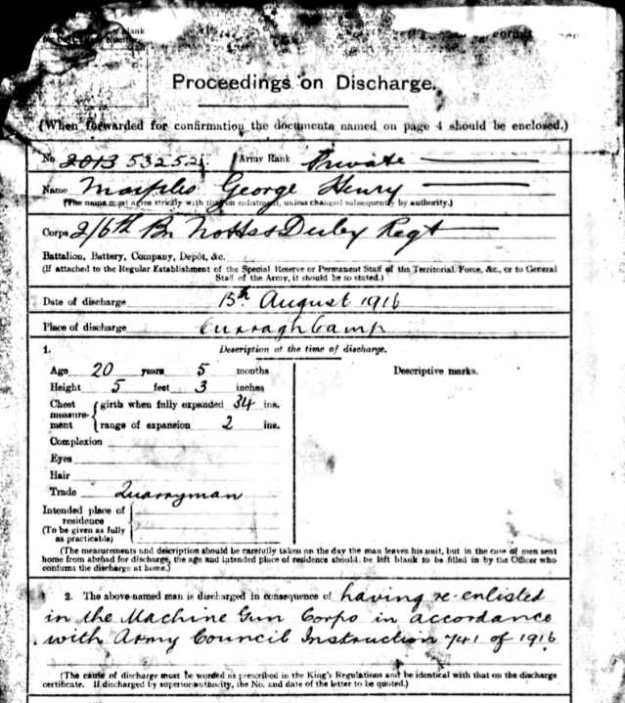 Proceedings on Discharge.
(When forwarded for confirmation the documents named on page 4 should be enclosed.)
No. 2013 53252 Army Rank Private
Name George Henry
(The name must agree strictly with that on enlistment, unless changed subsequently by authority.)
Corps 2/6th Bn Notts & Derby Regt
Battalion, Battery, Company, Depôt, &c.
(If attached to the Regular Establishment of the Special Reserve or Permanent Staff of the Territorial Force, &c., or to General
Staff of the Army, it should be so stated.)
Date of discharge 15th August 1916
Place of discharge Curragh Camp
1. Description at the time of discharge.
Age 20 years 5 months
Height 5 feet 3 inches
Chest measurement { girth when fully expanded 34 ins.
range of expansion 2 ins.
Complexion
Eyes
Hair
Trade Quarryman
Intended place of
residence
(To be given as fully
as practicable)
Descriptive marks.
(The measurements and description should be carefully taken on the day the man leaves his unit, but in the case of men sent
home from abroad for discharge, the age and intended place of residence should be left blank to be filled in by the Officer who
confirms the discharge at home.)
2. The above-named man is discharged in consequence of having re-enlisted
in the Machine Gun Corps in accordance
with Army Council Instruction 741 of 1916
(The cause of discharge must be worded as prescribed in the King's Regulations and be identical with that on the discharge
certificate. If discharged by superior authority, the No. and date of the letter to be quoted.)